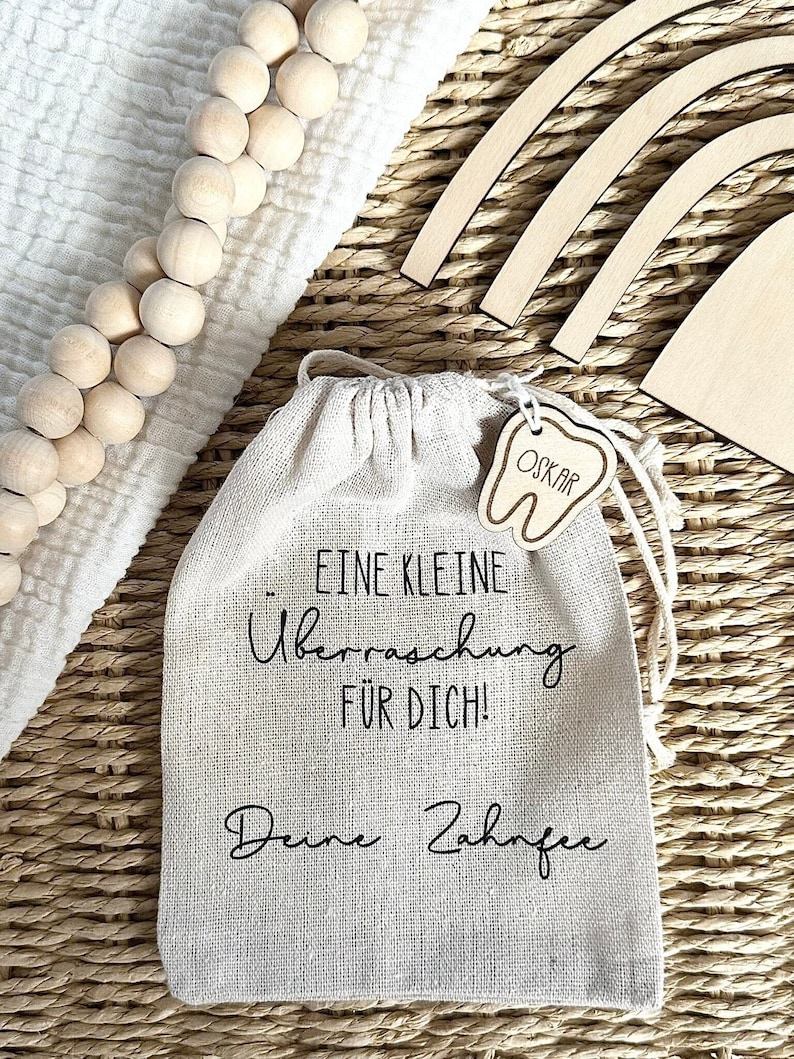 OSKAR
EINE KLEINE
Überraschung
FÜR DICH!
Deine Zahnfee